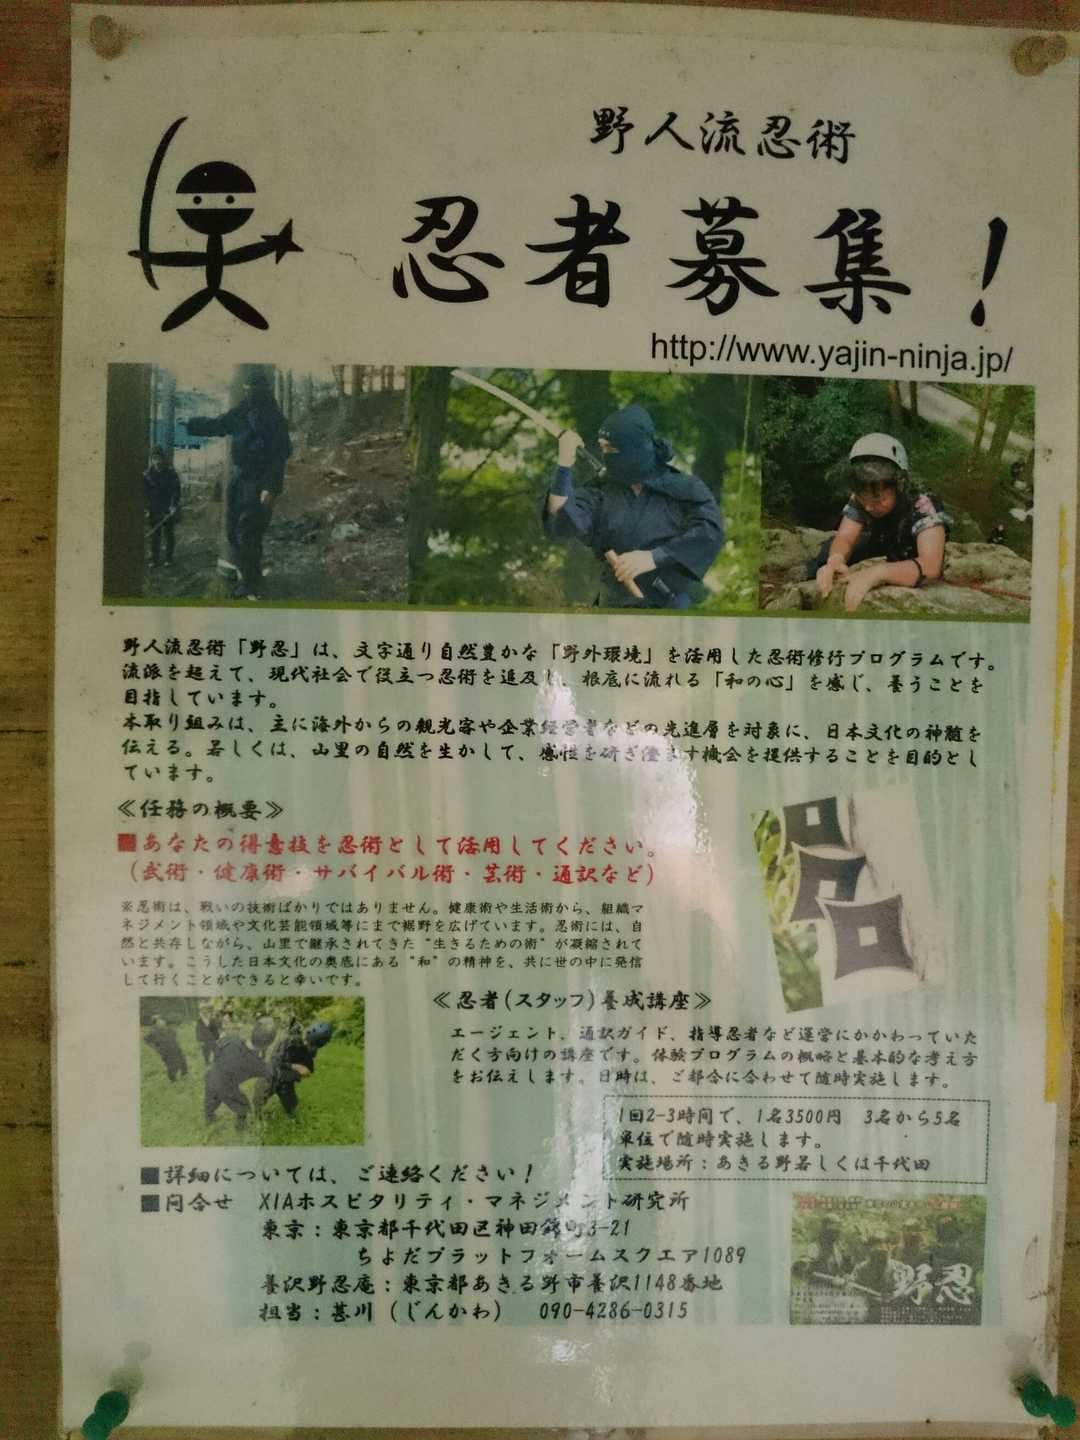 野人流忍術
忍者募集！
http://www.yajin-ninja.jp/
野人流忍術「野忍」は、文字通り自然豊かな「野外環境」を活用した忍術修行プログラムです。
流派を超えて、現代社会で役立つ忍術を追及し、根底に流れる「和の心」を感じ、養うことを
目指しています。
本取り組みは、主に海外からの観光客や企業経営者などの先進層を対象に、日本文化の神髄を
伝える。若しくは、山里の自然を生かして、感性を研ぎ澄ます機会を提供することを目的とし
ています。
≪任務の概要≫
■あなたの得意技を忍術として活用してください。
（武術・健康術・サバイバル術・芸術・通訳など）
※忍術は、戦いの技術ばかりではありません。健康術や生活術から、組織マ
ネジメント領域や文化芸能領域等にまで裾野を広げています。忍術には、自
然と共存しながら、山里で継承されてきた“生きるための術”が凝縮されて
います。こうした日本文化の奥底にある“和”の精神を、共に世の中に発信
して行くことができると幸いです。
≪忍者(スタッフ)養成講座≫
エージェント、通訳ガイド、指導忍者など運営にかかわっていた
だく方向けの講座です。体験プログラムの概略と基本的な考え方
をお伝えします。日時は、ご都合に合わせて随時実施します。
1回2-3時間で、1名3500円　3名から5名
単位で随時実施します。
実施場所：あきる野若しくは千代田
■詳細については、ご連絡ください！
■問合せ　XIAホスピタリティ・マネジメント研究所
東京：東京都千代田区神田錦町3-21
ちよだプラットフォームスクエア1089
養沢野忍庵：東京都あきる野市養沢1148番地
担当：甚川（じんかわ）　090-4286-0315
野忍